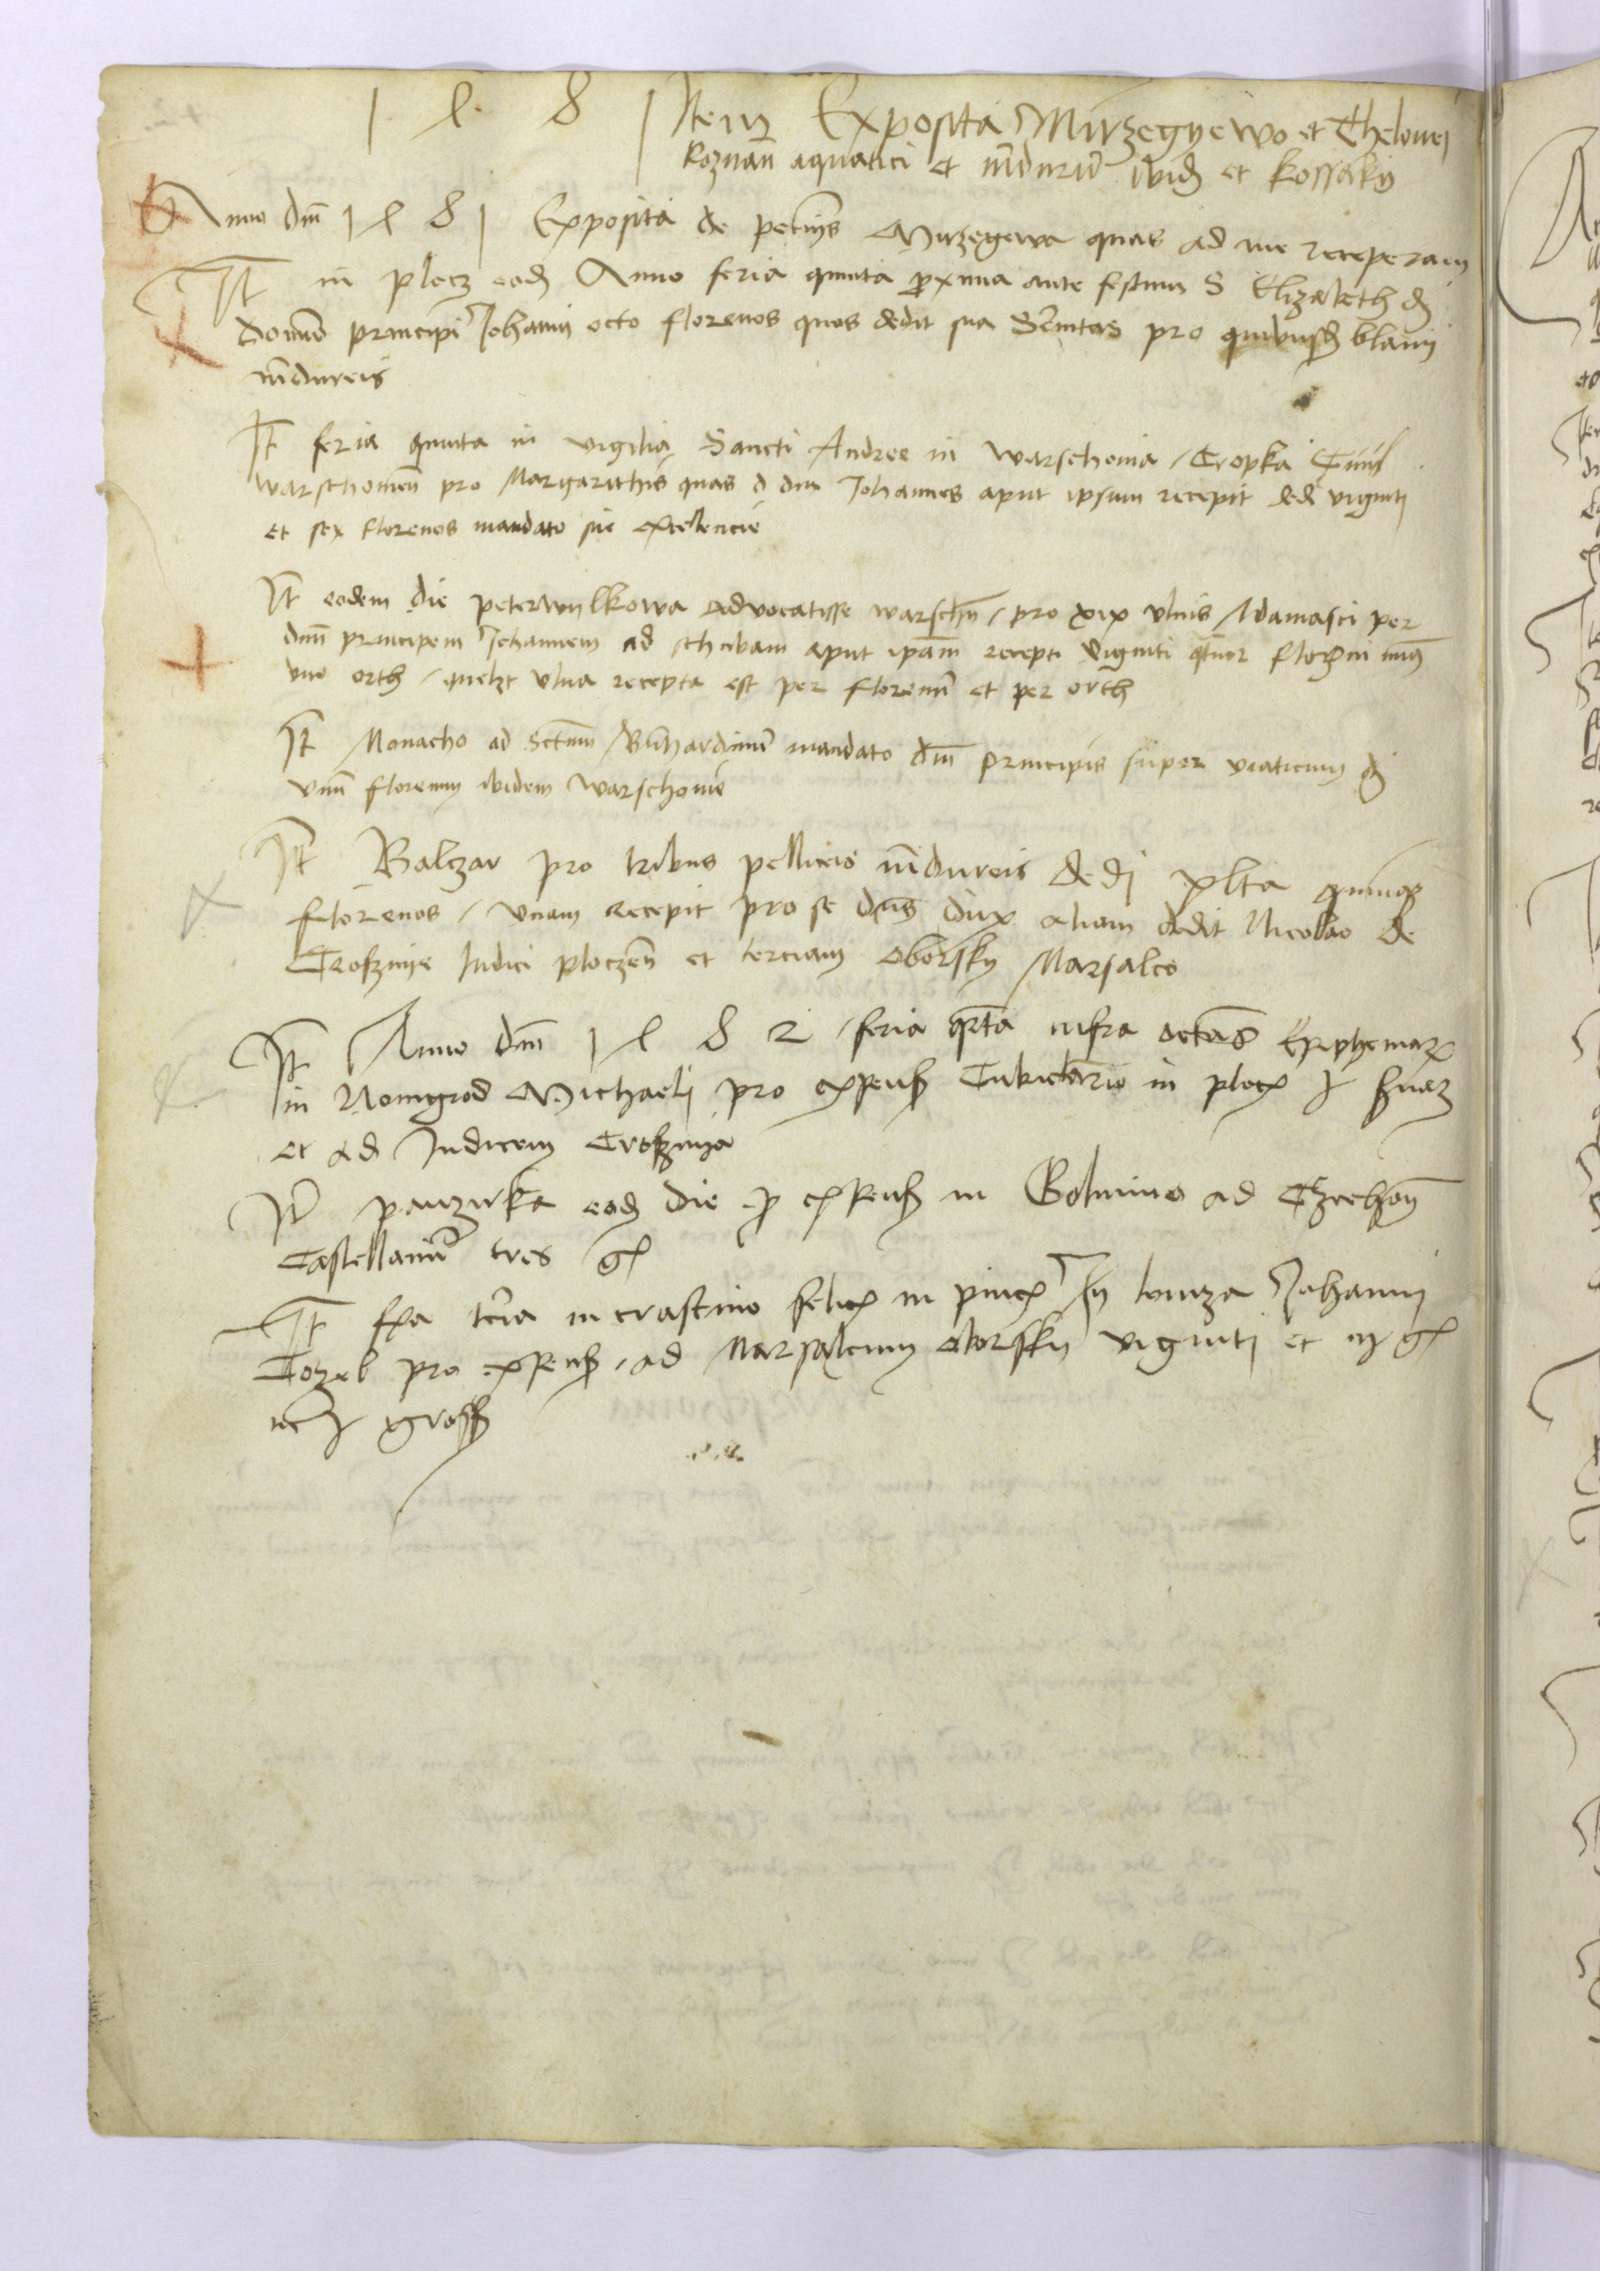 1 l 8 1 Item Exposita Mirzegyewo et Thelonei
Roznan aquatici et ibid et Kossaky
Anno dni 1 l 8 1 Exposita de pecuniis Mirzegewa quas ad me receperam
It in plocz eod Anno feria quinta proxima ante festum S Elizabeth d
domino principi Johanni octo florenos quos dedit sua Serenitas pro quibusd blamy
mdureis
It feria quinta in vigilia Sancti Andree in Warschouia Cropka
warschouien pro Margarithis quas d dux Johannes aput ipsum recepit dedi viginti
et sex florenos mandato sue excellencie
It eodem die peterwylkowa advocatisse warschn pro xix ulnis Adamasci per
dnm principem Johannem ad schubam aput ipam recepti viginti qtuor florenos minus
uno orth quelzt ulna recepta est per florenum et per orth
It Monacho ad Sctum Bernhardinum mandato dni Principis super viaticum d
unum florenum ibidem Warschouie
It Balczar pro tribus pelliceis mdureis dedi xlta quinque
florenos unam recepit pro se dns dux aliam dedit Nicolao de
Croszmye Judici ploczen et terciam oborsky Marsalco
It Anno dni 1 l 8 2 feria qrta infra octavas Epiphaniarum
in Nouigrod Michaeli pro expensis Cubiculario in plocz
et ad Judicem Croszmya
It panzirka eod die pro expensis in Golmino ad Czechon
Castellanum tres gs
It fia tcia in crastino felicis in pincis In lomza Johanni
Cozel pro expensis ad Marsalcum oborsky viginti et gs
gross